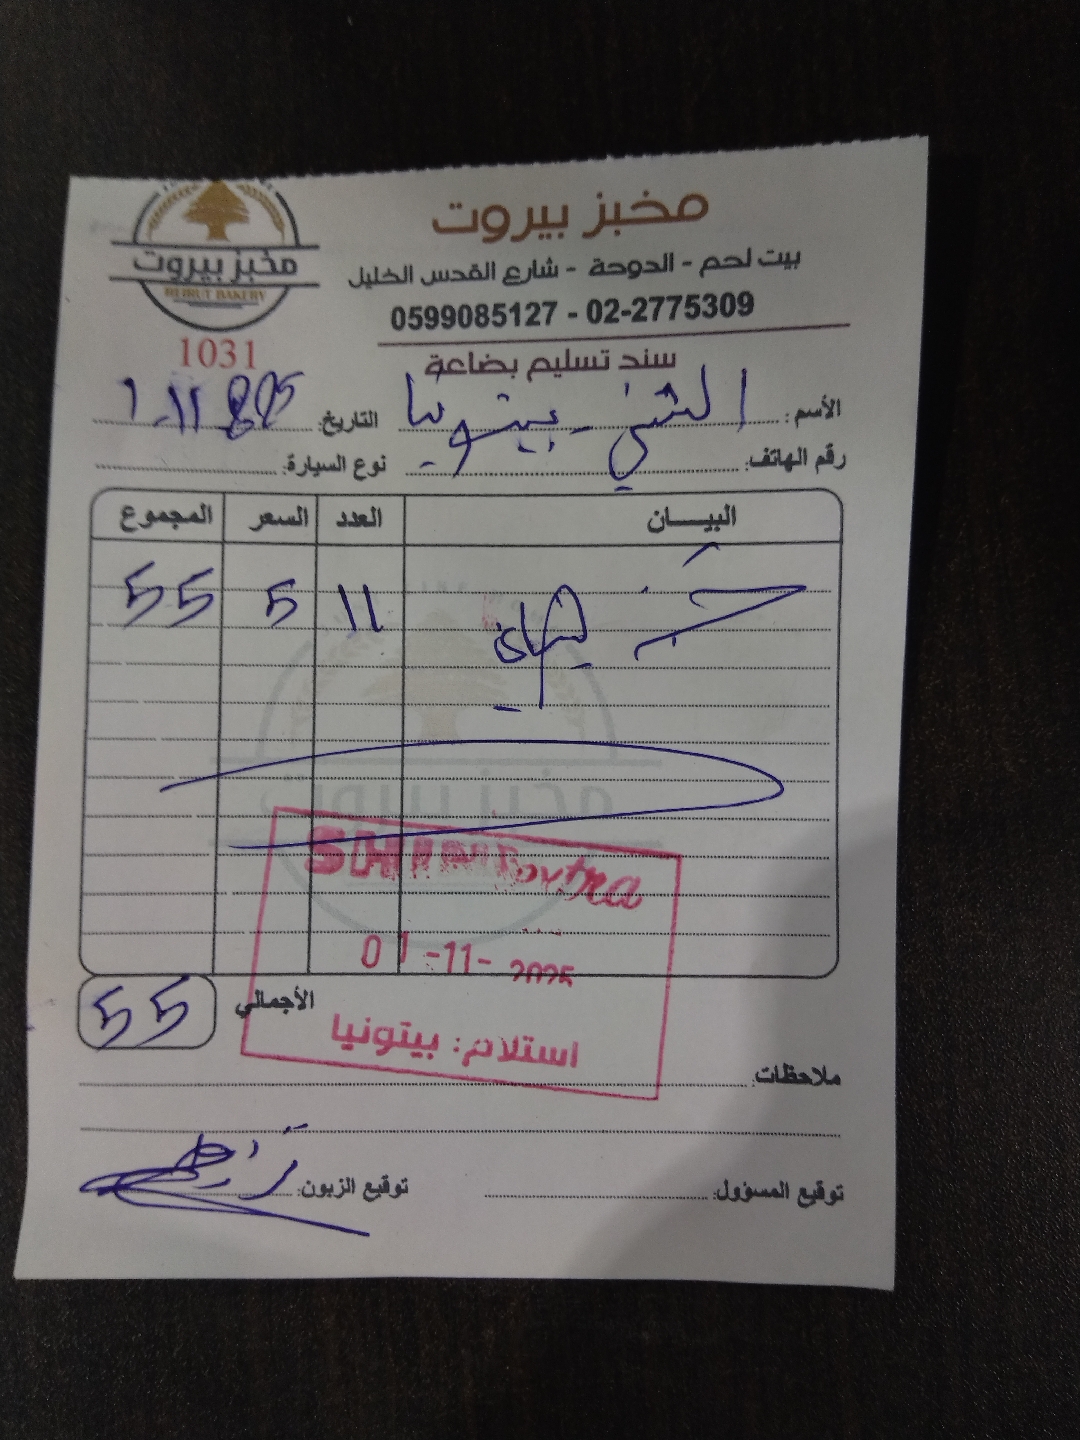 مخبز بيروت
بيت لحم - الدوحة - شارع القدس الخليل
0599085127 - 02-2775309
مخبز بيروت
BEIRUT BAKERY
1031
سند تسليم بضاعة
الأسم: الشني - بيتونيا التاريخ: 1-11
رقم الهاتف: نوع السيارة:
البيـــان العدد السعر المجموع
خبز 11 5 55
مخبز بيروت
01-11-2025
الأجمالي 55
استلام: بيتونيا
ملاحظات:
توقيع المسؤول: توقيع الزبون: